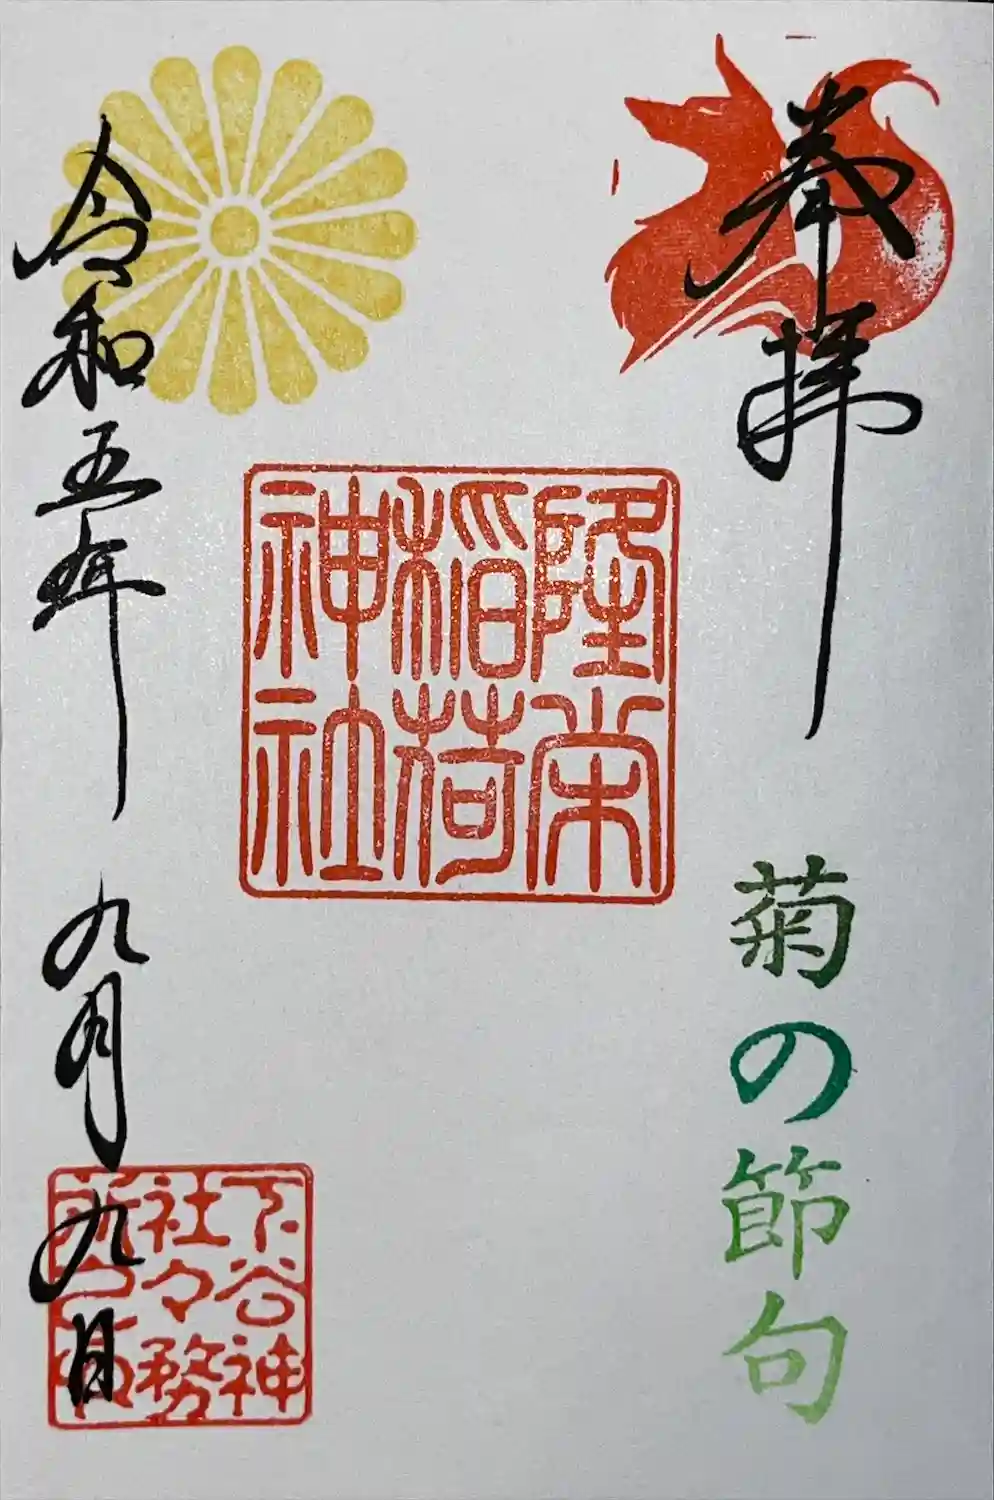 奉拝
菊の節句
隆栄
稲荷
神社
令和五年 九月九日
下谷神
社々務
所